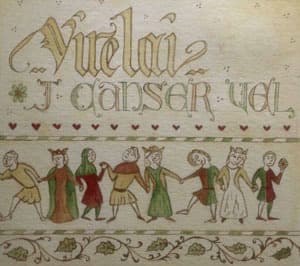 Virelai
I DANSER VEL